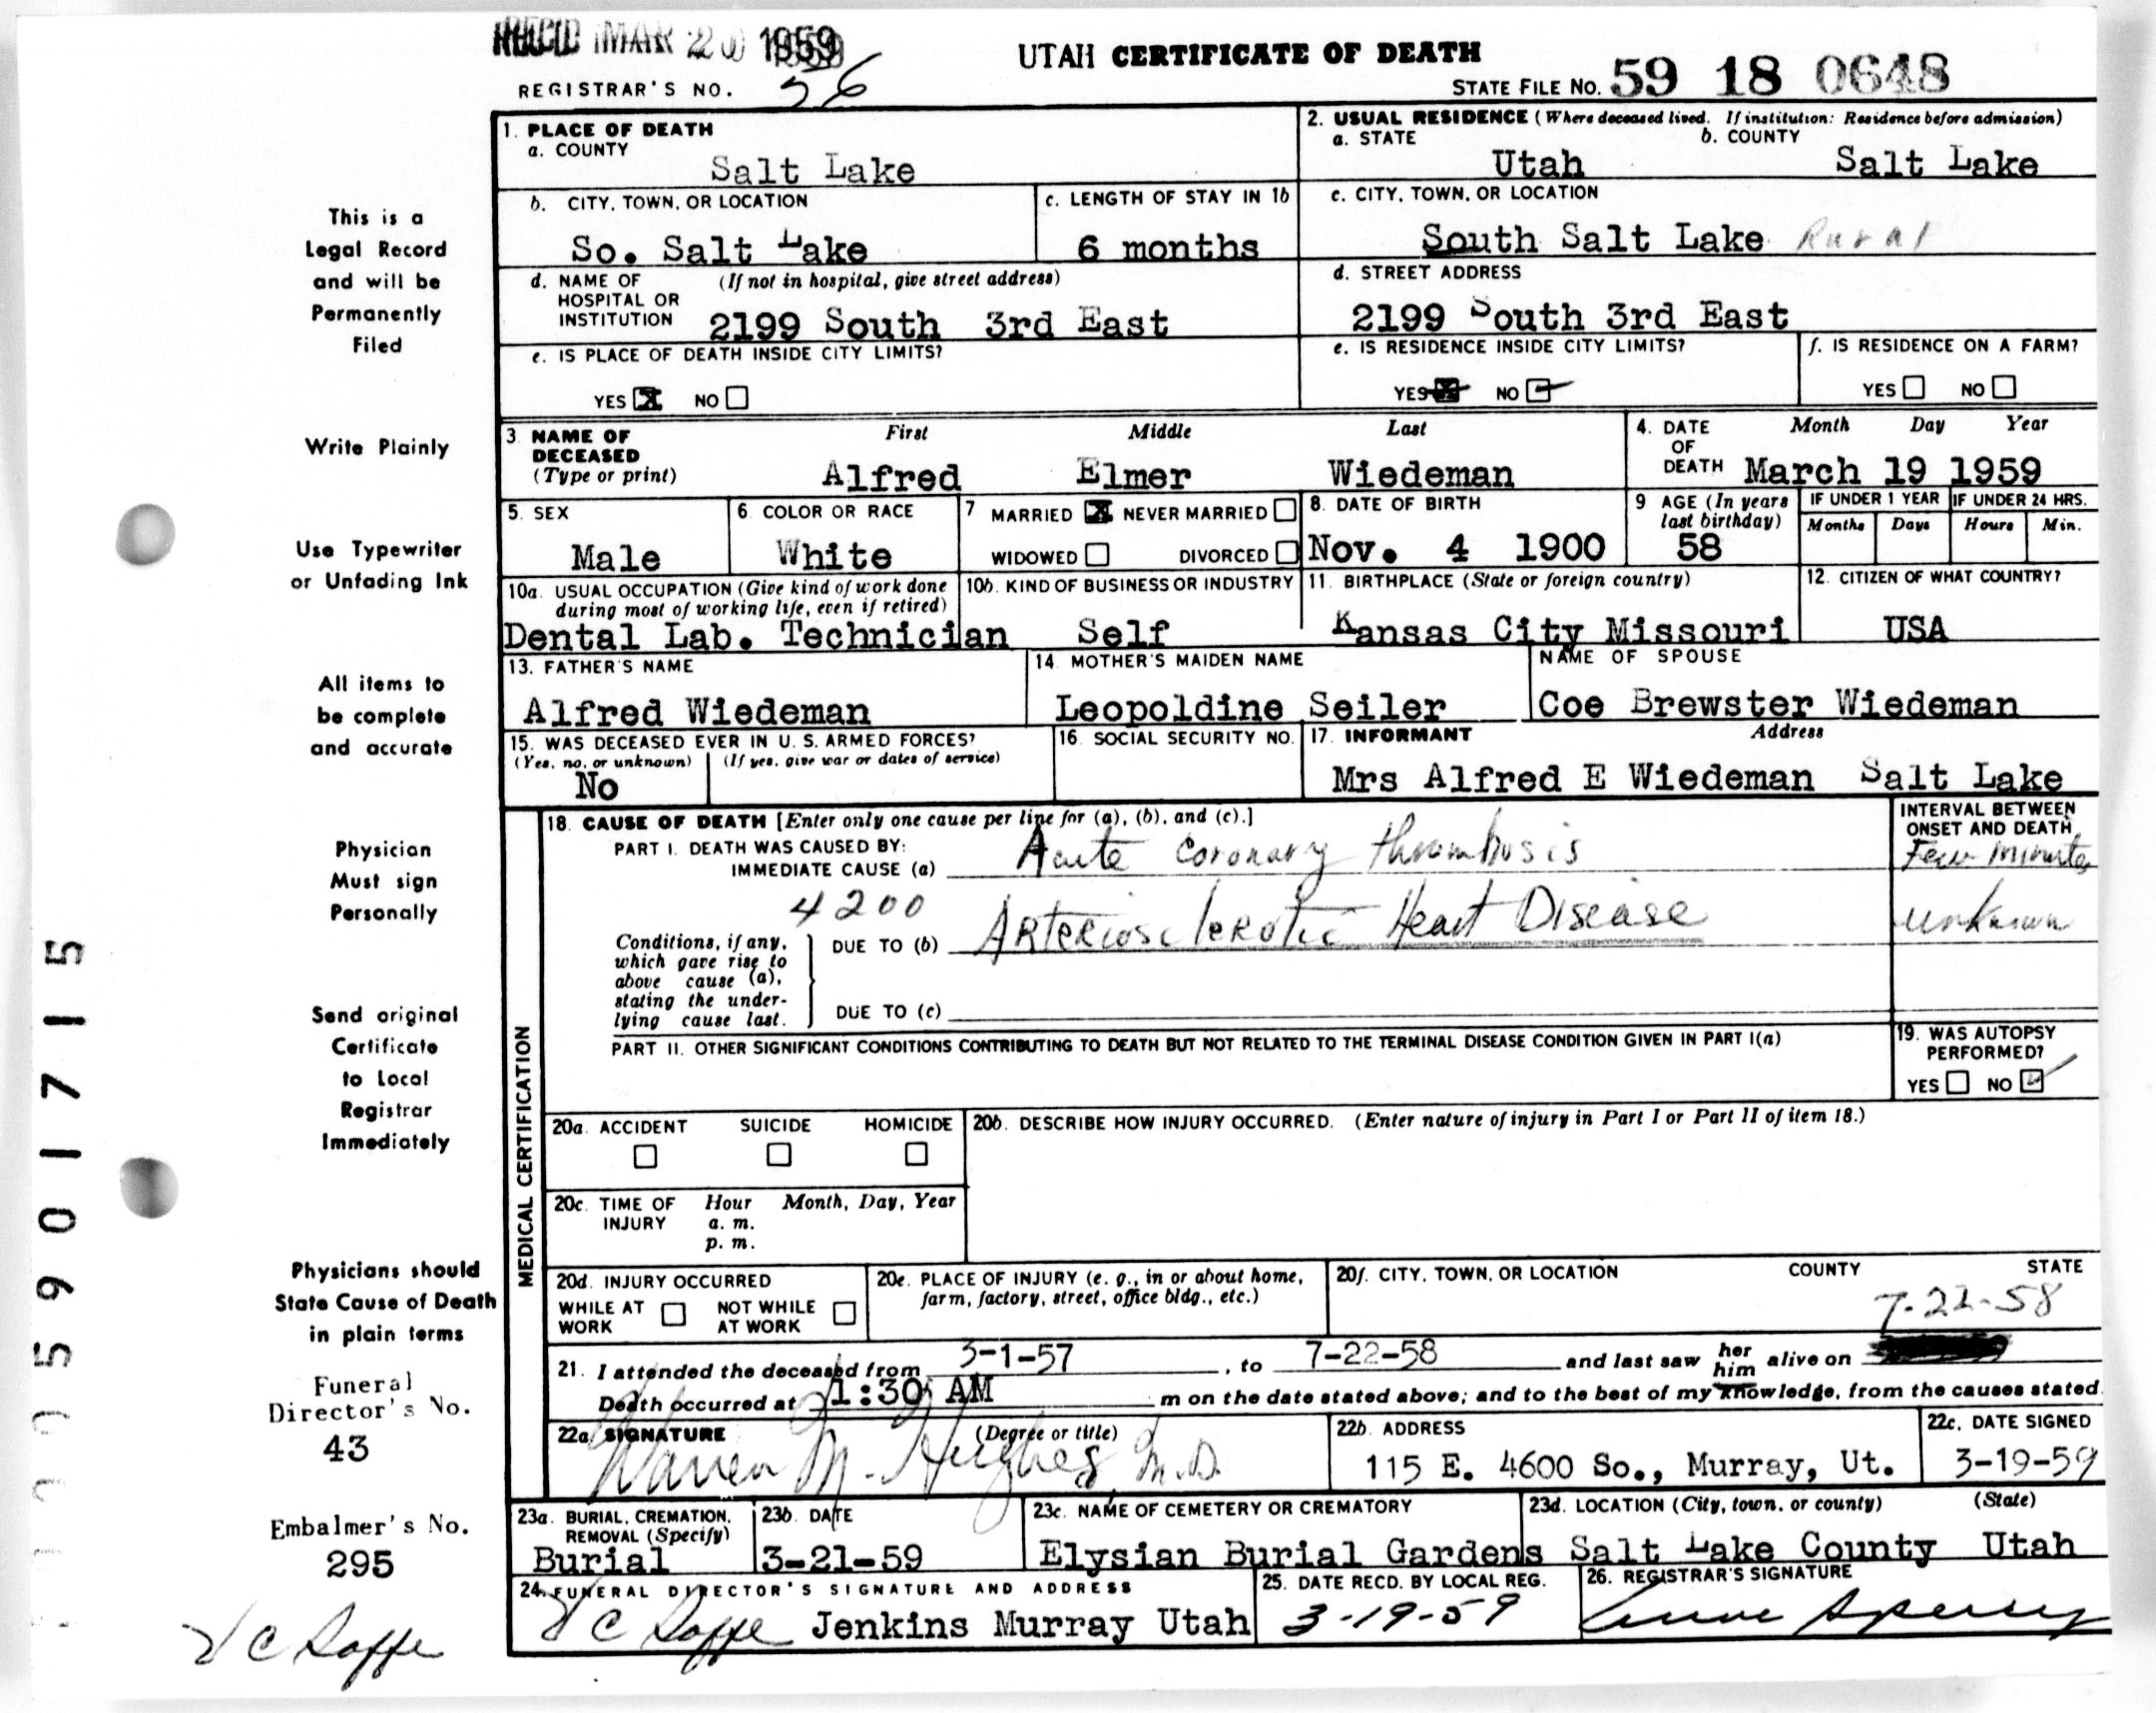 REC'D MAR 20 1959
UTAH CERTIFICATE OF DEATH
REGISTRAR'S NO. 56
STATE FILE NO. 59 18 0648
1. PLACE OF DEATH
a. COUNTY
Salt Lake
2. USUAL RESIDENCE (Where deceased lived. If institution: Residence before admission)
a. STATE b. COUNTY
Utah Salt Lake
b. CITY, TOWN, OR LOCATION
So. Salt Lake
c. LENGTH OF STAY IN 1b
6 months
c. CITY, TOWN, OR LOCATION
South Salt Lake Rural
d. NAME OF (If not in hospital, give street address)
HOSPITAL OR
INSTITUTION 2199 South 3rd East
d. STREET ADDRESS
2199 South 3rd East
e. IS PLACE OF DEATH INSIDE CITY LIMITS?
YES X NO
e. IS RESIDENCE INSIDE CITY LIMITS?
YES X NO
f. IS RESIDENCE ON A FARM?
YES NO
3. NAME OF First Middle Last
DECEASED
(Type or print) Alfred Elmer Wiedeman
4. DATE Month Day Year
OF
DEATH March 19 1959
5. SEX
Male
6. COLOR OR RACE
White
7 MARRIED X NEVER MARRIED
WIDOWED DIVORCED
8. DATE OF BIRTH
Nov. 4 1900
9 AGE (In years
last birthday)
58
IF UNDER 1 YEAR
Months Days
IF UNDER 24 HRS.
Hours Min.
10a. USUAL OCCUPATION (Give kind of work done
during most of working life, even if retired)
Dental Lab. Technician
10b. KIND OF BUSINESS OR INDUSTRY
Self
11. BIRTHPLACE (State or foreign country)
Kansas City Missouri
12. CITIZEN OF WHAT COUNTRY?
USA
13. FATHER'S NAME
Alfred Wiedeman
14. MOTHER'S MAIDEN NAME
Leopoldine Seiler
NAME OF SPOUSE
Coe Brewster Wiedeman
15. WAS DECEASED EVER IN U. S. ARMED FORCES?
(Yes, no, or unknown) (If yes, give war or dates of service)
No
16. SOCIAL SECURITY NO.
17. INFORMANT Address
Mrs Alfred E Wiedeman Salt Lake
MEDICAL CERTIFICATION
18. CAUSE OF DEATH [Enter only one cause per line for (a), (b), and (c).]
PART I. DEATH WAS CAUSED BY:
IMMEDIATE CAUSE (a) Acute coronary thrombosis
INTERVAL BETWEEN
ONSET AND DEATH
Few minutes
4200
Conditions, if any,
which gave rise to
above cause (a),
stating the under-
lying cause last.
DUE TO (b) Arteriosclerotic Heart Disease
unknown
DUE TO (c)
PART II. OTHER SIGNIFICANT CONDITIONS CONTRIBUTING TO DEATH BUT NOT RELATED TO THE TERMINAL DISEASE CONDITION GIVEN IN PART I(a)
19. WAS AUTOPSY
PERFORMED?
YES NO
20a. ACCIDENT SUICIDE HOMICIDE
20b. DESCRIBE HOW INJURY OCCURRED. (Enter nature of injury in Part I or Part II of item 18.)
20c. TIME OF Hour Month, Day, Year
INJURY a. m.
p. m.
20d. INJURY OCCURRED
WHILE AT NOT WHILE
WORK AT WORK
20e. PLACE OF INJURY (e. g., in or about home,
farm, factory, street, office bldg., etc.)
20f. CITY, TOWN, OR LOCATION COUNTY STATE
7-22-58
21. I attended the deceased from 3-1-57, to 7-22-58 and last saw her him alive on
Death occurred at 1:30 AM m on the date stated above; and to the best of my knowledge, from the causes stated.
22a. SIGNATURE (Degree or title)
Warren M. Hughes M.D.
22b. ADDRESS
115 E. 4600 So., Murray, Ut.
22c. DATE SIGNED
3-19-59
23a. BURIAL, CREMATION,
REMOVAL (Specify)
Burial
23b. DATE
3-21-59
23c. NAME OF CEMETERY OR CREMATORY
Elysian Burial Gardens
23d. LOCATION (City, town, or county) (State)
Salt Lake County Utah
24. FUNERAL DIRECTOR'S SIGNATURE AND ADDRESS
Jenkins Murray Utah
25. DATE RECD. BY LOCAL REG.
3-19-59
26. REGISTRAR'S SIGNATURE
This is a
Legal Record
and will be
Permanently
Filed
Write Plainly
Use Typewriter
or Unfading Ink
All items to
be complete
and accurate
Physician
Must sign
Personally
Send original
Certificate
to Local
Registrar
Immediately
Physicians should
State Cause of Death
in plain terms
Funeral
Director's No.
43
Embalmer's No.
295
5901715